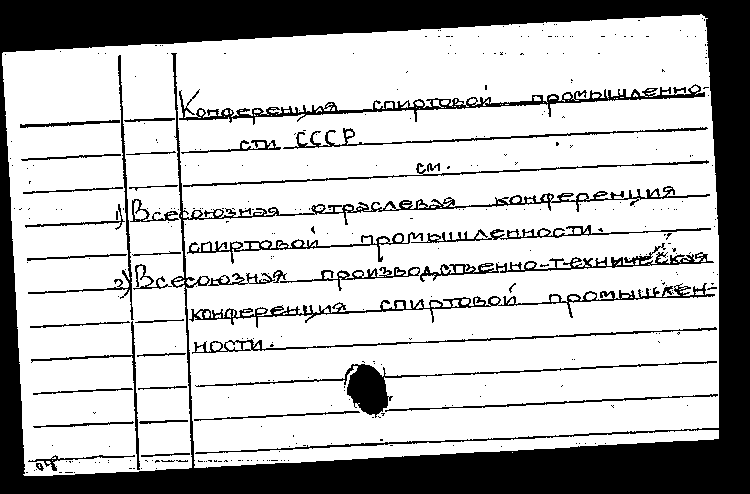 Конференция спиртовой промышленно-
сти СССР.
см.
1) Всесоюзная отраслевая конференция
спиртовой промышленности.
2) Всесоюзная производственно-техническая
конференция спиртовой промышлен-
ности.